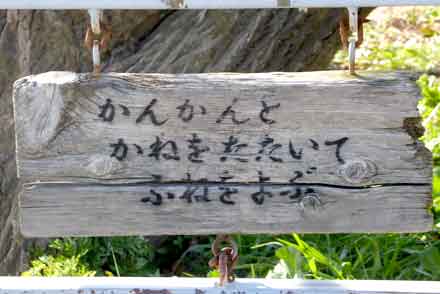 かんかんと
かねをたたいて
ふねをよぶ